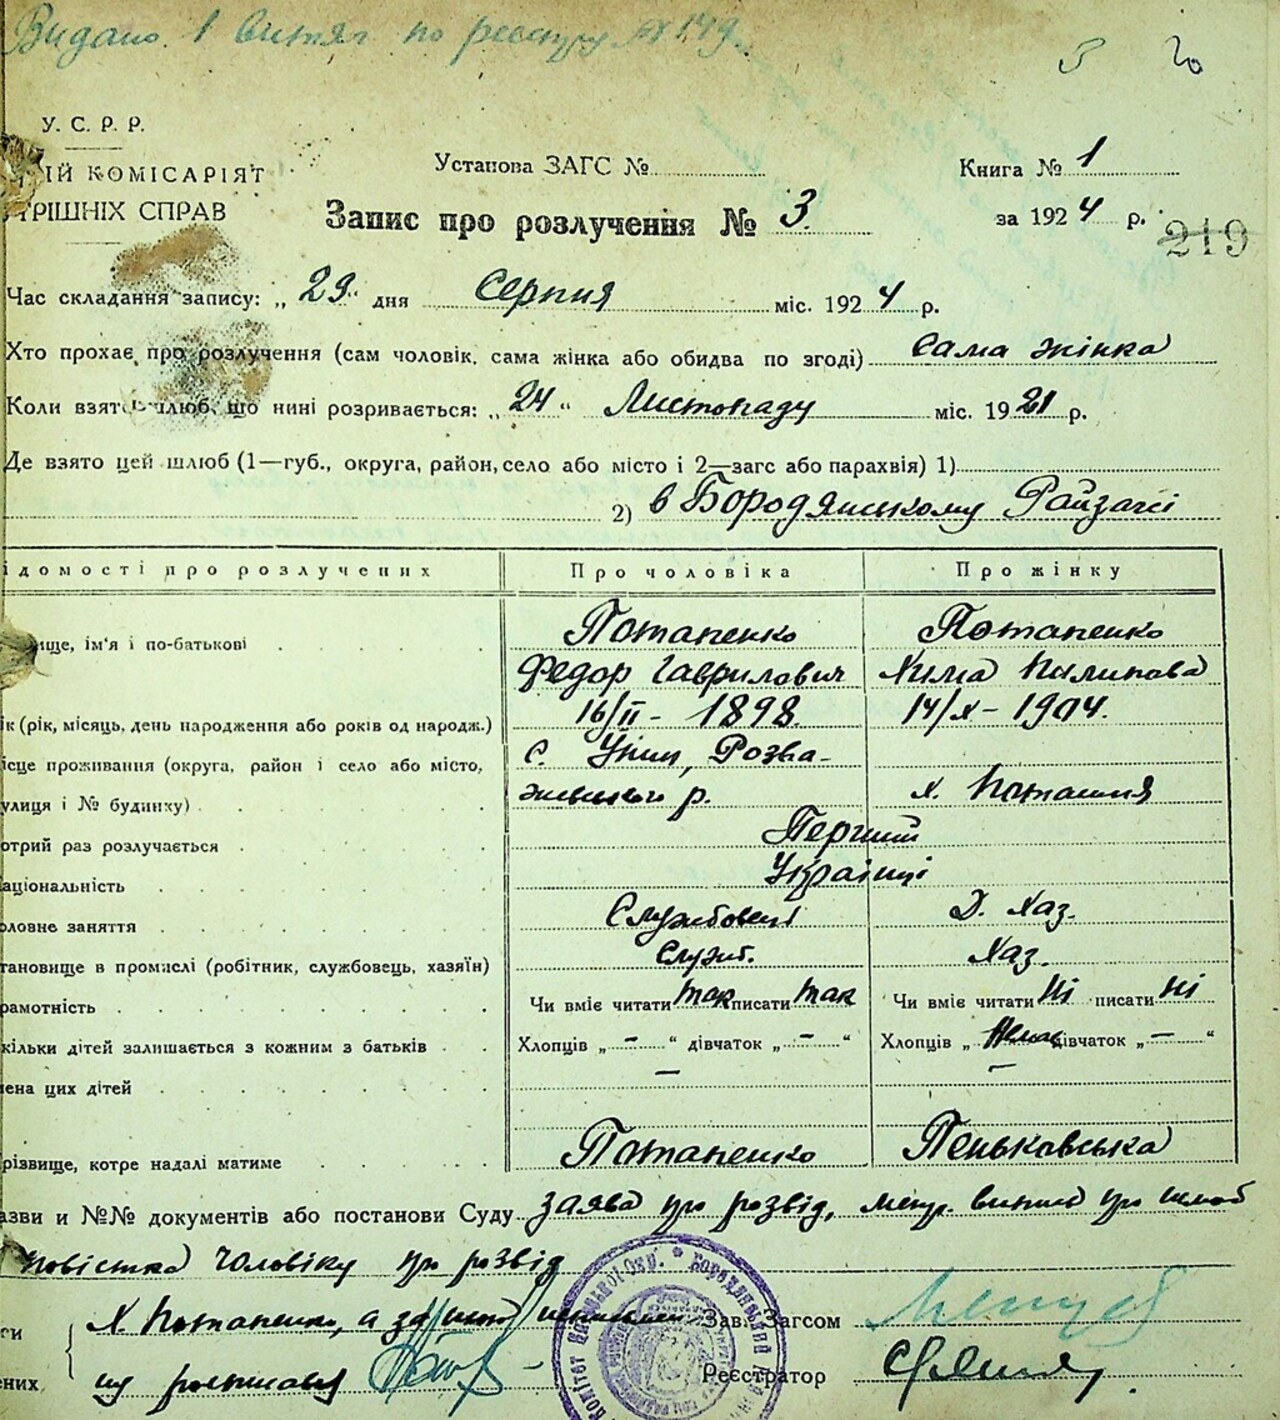 Видано 1 витяг по реєстру № 149.
5 20
У. С. Р. Р.
ІЙ КОМІСАРІЯТ
ТРІШНІХ СПРАВ
Установа ЗАГС №
Книга № 1
Запис про розлучення № 3.
за 1924 р.
219
Час складання запису: „29" дня Серпня міс. 1924 р.
Хто прохає про розлучення (сам чоловік, сама жінка або обидва по згоді) сама жінка
Коли взято шлюб, що нині розривається: „24" Листопаду міс. 1921 р.
Де взято цей шлюб (1—губ., округа, район, село або місто і 2—загс або парахвія) 1)
2) в Бородянському Райзагсі
ідомості про розлучених Про чоловіка Про жінку
ище, ім'я і по-батькові
Потапенко Потапенко
Федор Гаврилович Хима
ік (рік, місяць, день народження або років од народж.) 16/II - 1898. 14/X - 1904.
ісце проживання (округа, район і село або місто, с. Розва-
улиця і № будинку) жівського р. х. Поташня
отрий раз розлучається Перший
аціональність Українці
оловне заняття Службовець Д. Хаз.
тановище в промислі (робітник, службовець, хазяїн) Служб. Хаз.
рамотність Чи вміє читати так писати так Чи вміє читати Ні писати Ні
кільки дітей залишається з кожним з батьків Хлопців „ — " дівчаток „ — " Хлопців „ Немає дівчаток „ — "
мена цих дітей — —
різвище, котре надалі матиме Потапенко Пеньковська
азви и №№ документів або постанови Суду заява про розвід, метр. випис про шлюб
повістка чоловіку про розвід
си Х. Потапенко, а за Зав. Загсом
ених Реєстратор